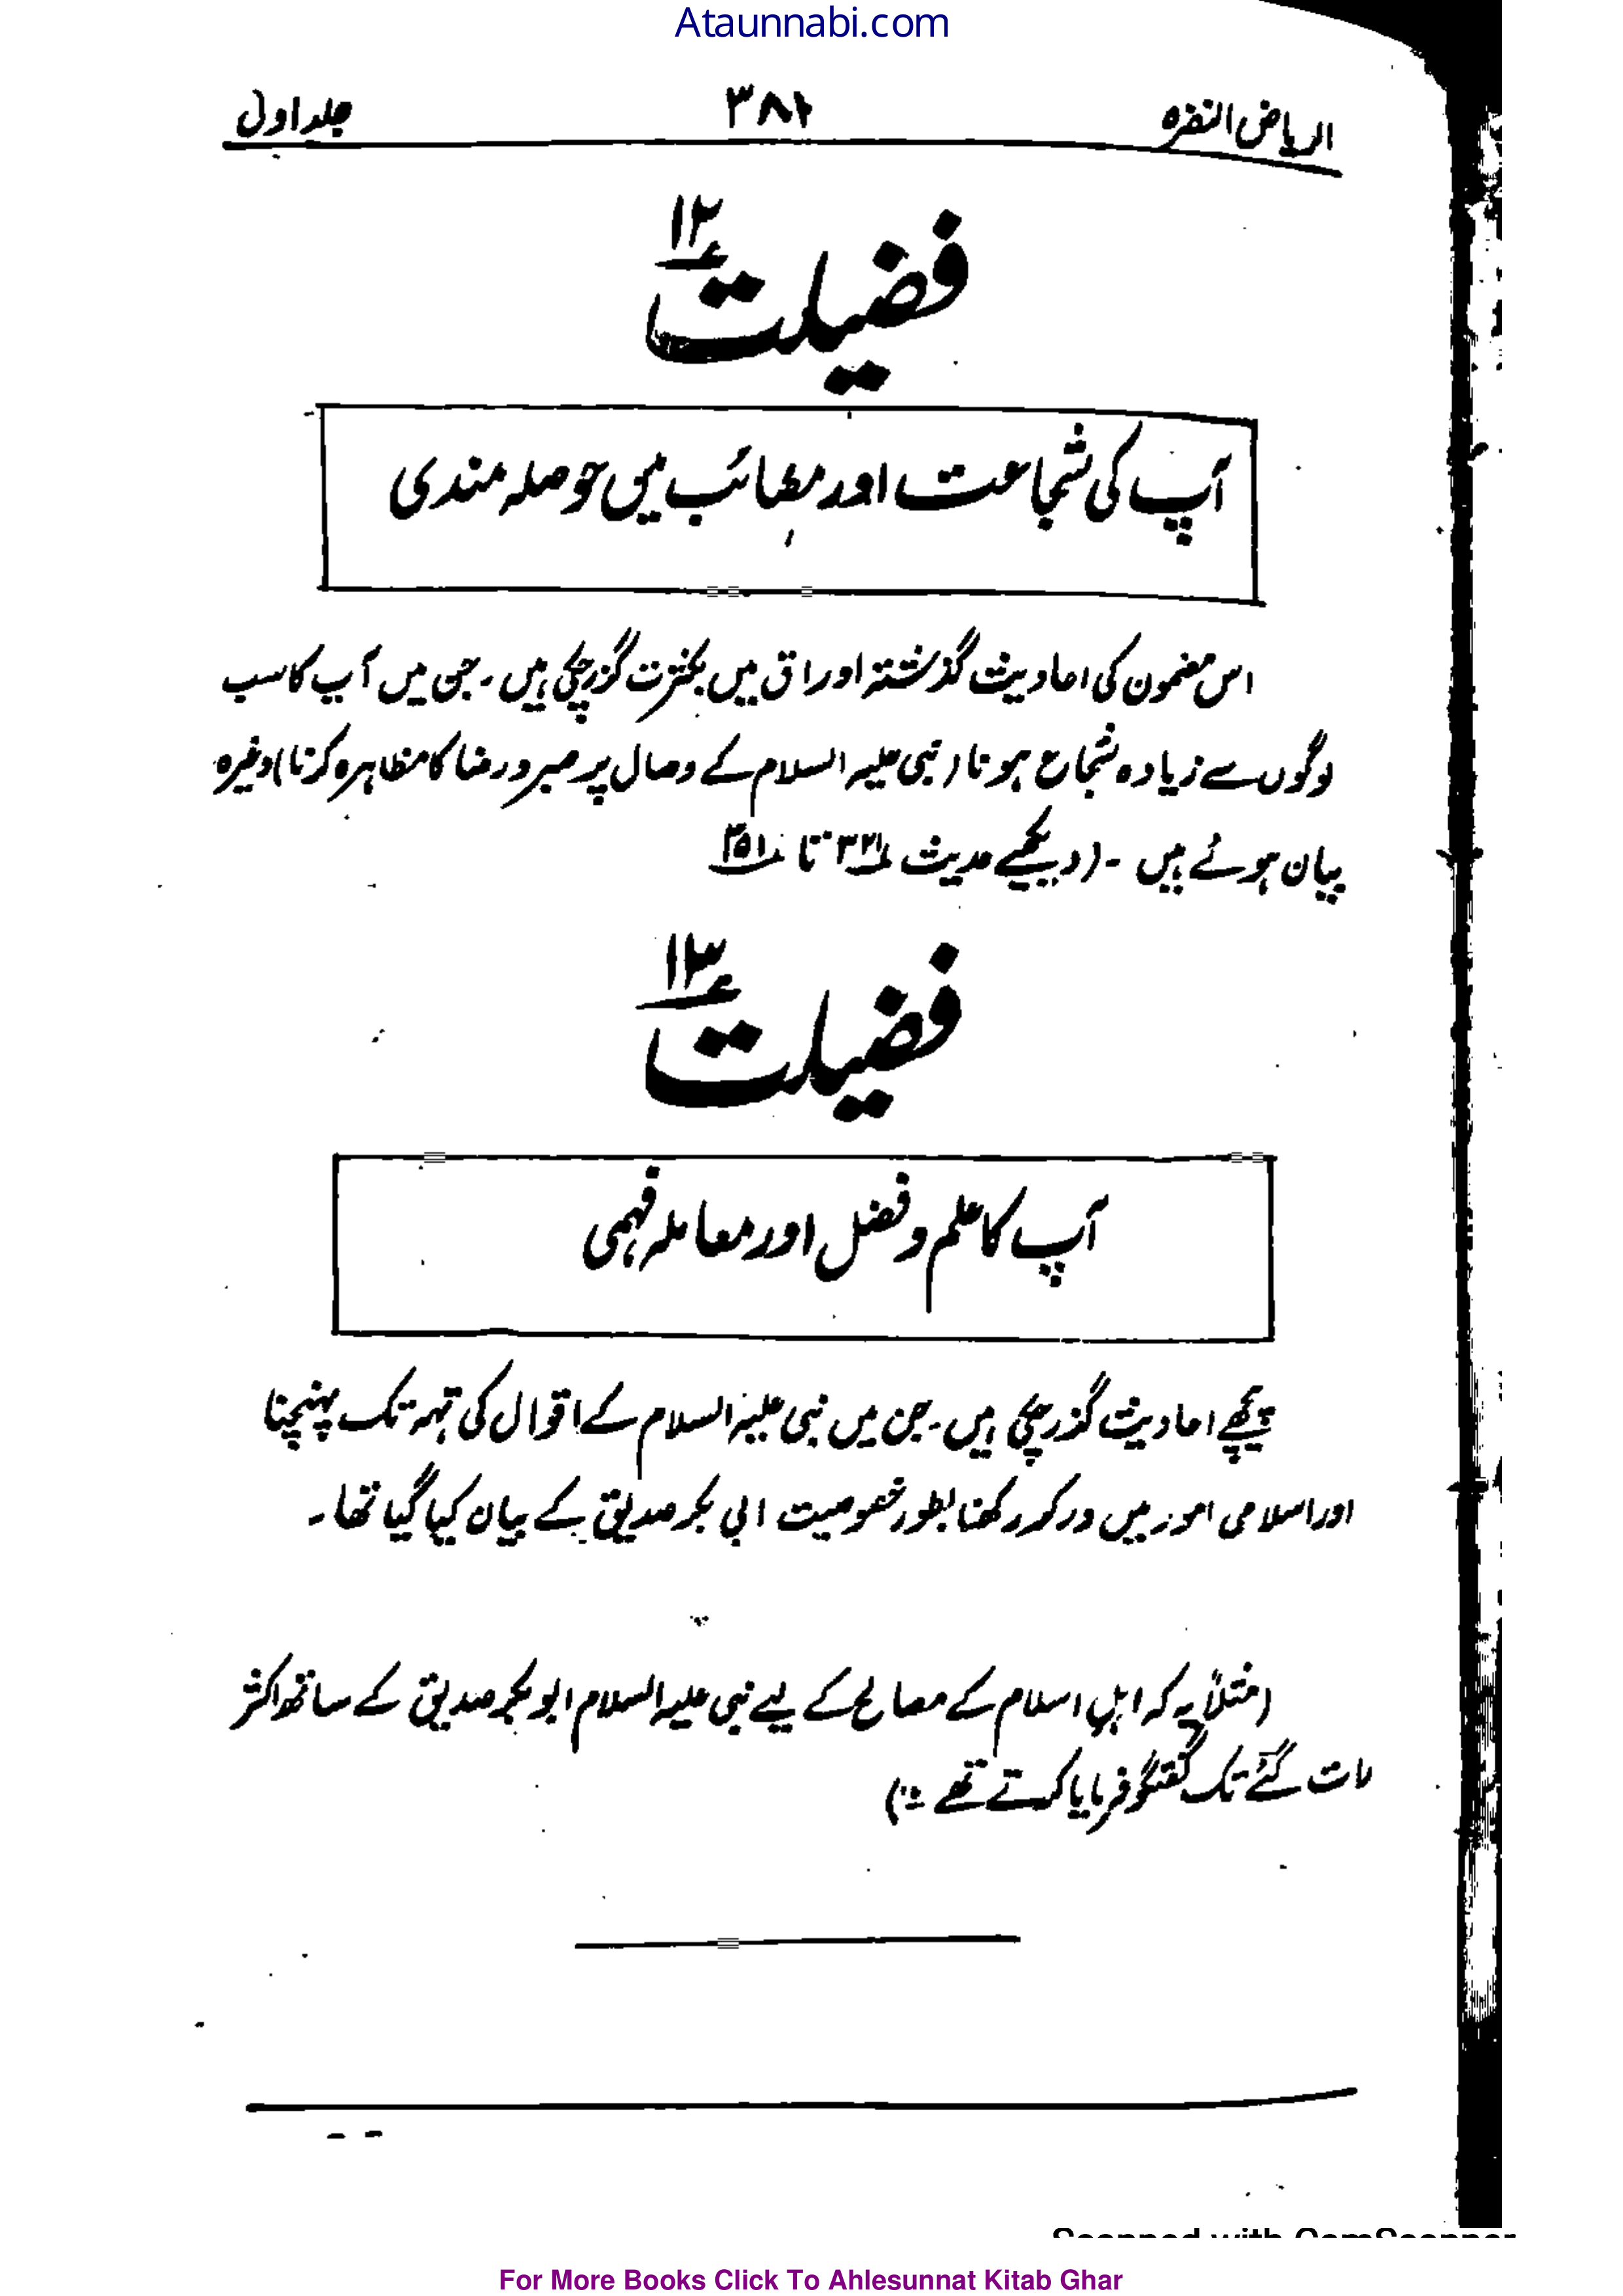 Ataunnabi.com
الریاض النضرہ ۳۸۲ جلد اول
فضیلت ۱۲
آپ کی شجاعت اور مصائب میں حوصلہ مندی
اس مضمون کی احادیث گذشتہ اوراق میں بکثرت گزر چکی ہیں۔ جن میں آپ کا سب
لوگوں سے زیادہ شجاع ہونا (نبی علیہ السلام کے وصال پر صبر و رضا کا مظاہرہ کرنا) وغیرہ
بیان ہوئے ہیں ۔ (دیکھیے حدیث تا ۳۵۱
فضیلت ۱۳
آپ کا علم و فضل اور معاملہ فہمی
پیچھے احادیث گذر چکی ہیں۔ جن میں نبی علیہ السلام کے اقوال کی تہہ تک پہنچنا
اور اسلامی امور میں درک رکھنا بطور خصوصیت ابی بکر صدیق کے بیان کیا گیا تھا۔
(مثلاً یہ کہ اہلِ اسلام کے مصالح کے لیے نبی علیہ السلام ابو بکر صدیق کے ساتھ اکثر
رات گئے تک گفتگو فرمایا کرتے تھے ۔)
Scanned with CamScanner
For More Books Click To Ahlesunnat Kitab Ghar